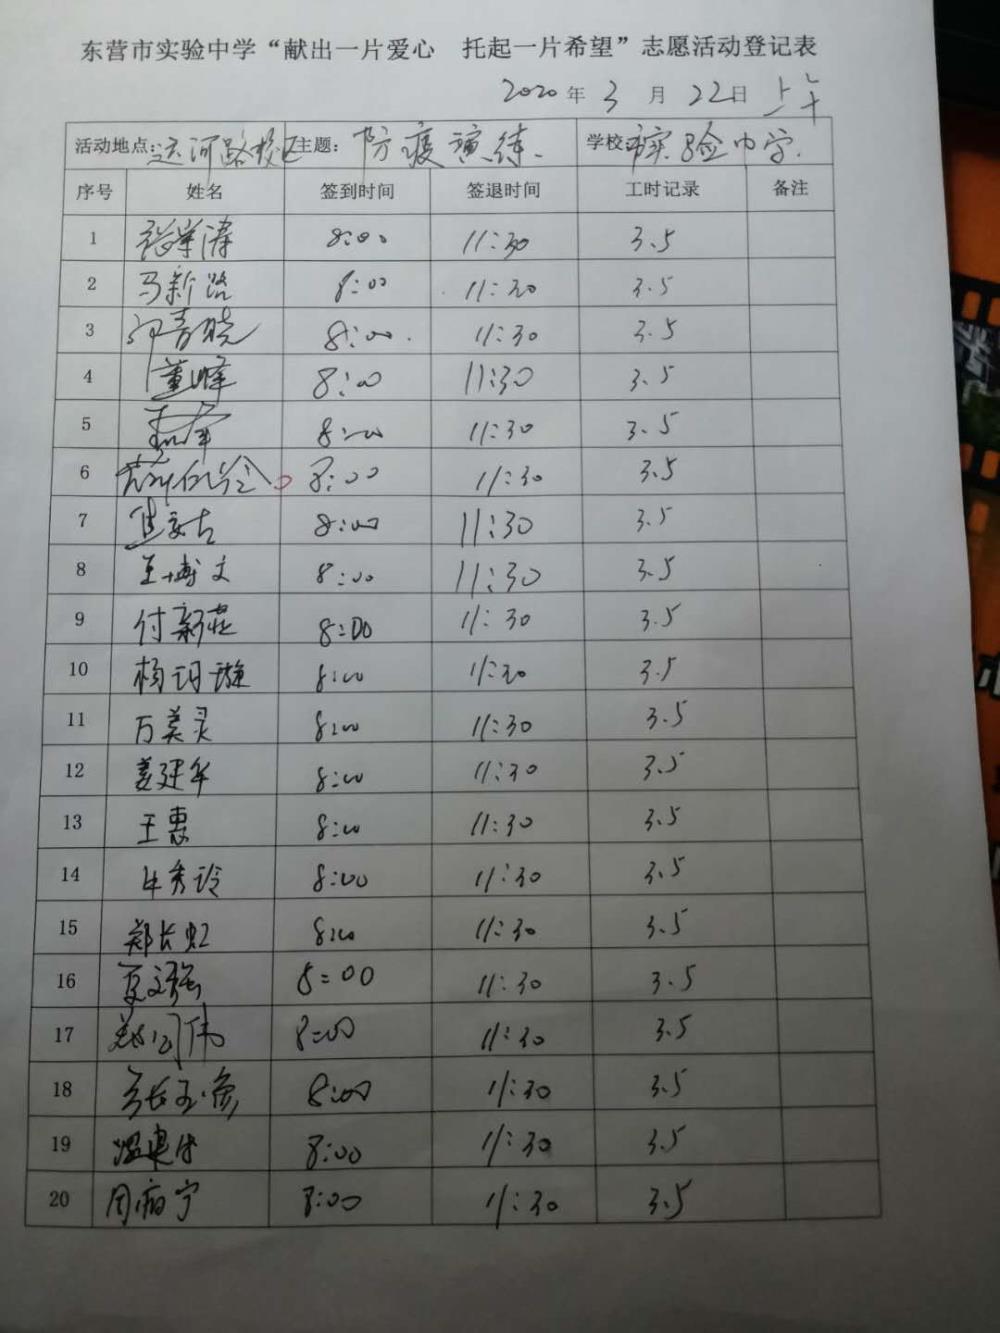 东营市实验中学“献出一片爱心 托起一片希望”志愿活动登记表
2020年3月22日 上午
活动地点:运河路校区 主题: 防疫演练. 学校:市实验中学.
序号 姓名 签到时间 签退时间 工时记录 备注
1 8:00 11:30 3.5
2 马新路 8:00 11:30 3.5
3 8:00. 11:30 3.5
4 董峰 8:00 11:30 3.5
5 8:00 11:30 3.5
6 8:00 11:30 3.5
7 8:00 11:30 3.5
8 王博文 8:00 11:30 3.5
9 付新花 8:00 11:30 3.5
10 杨玥璇 8:00 11:30 3.5
11 万美灵 8:00 11:30 3.5
12 姜建军 8:00 11:30 3.5
13 王惠 8:00 11:30 3.5
14 牛秀玲 8:00 11:30 3.5
15 郑长虹 8:00 11:30 3.5
16 夏文强 8:00 11:30 3.5
17 8:00 11:30 3.5
18 8:00 11:30 3.5
19 温建华 8:00 11:30 3.5
20 周丽宁 8:00 11:30 3.5